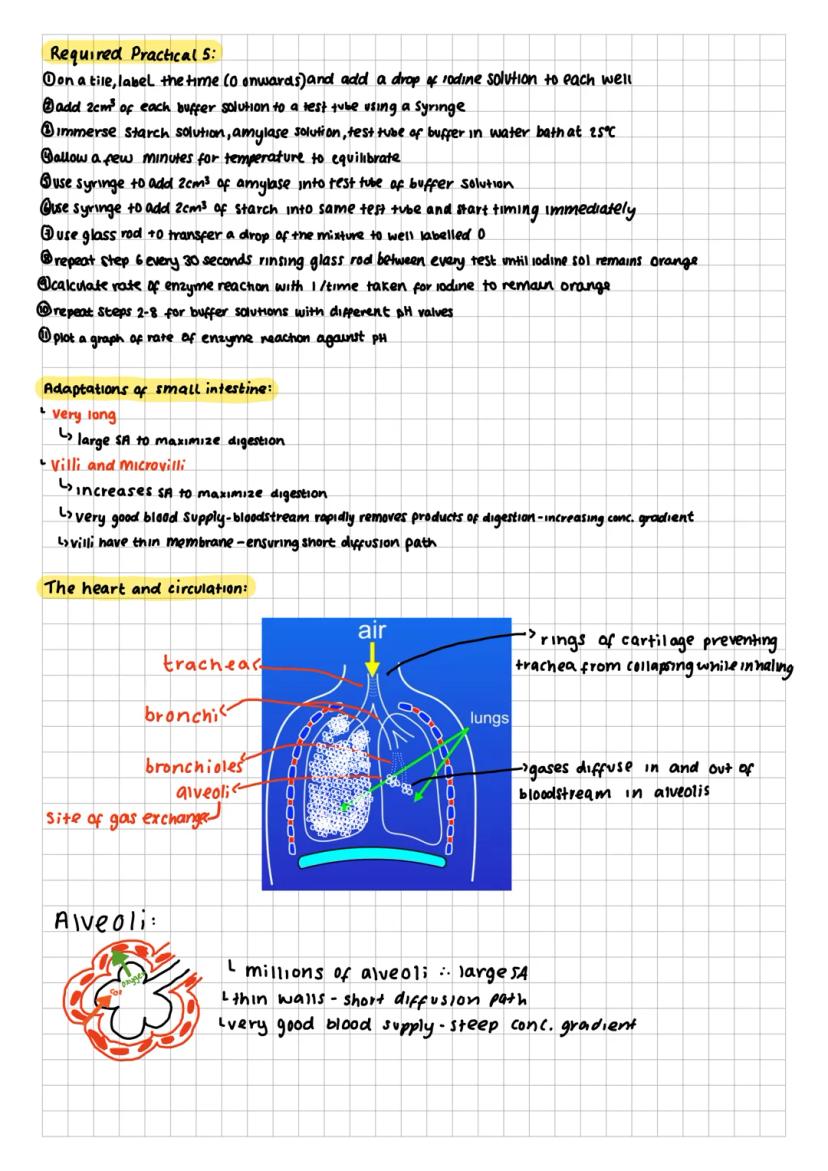 Required Practical 5:
①on a tile, label the time (0 onwards) and add a drop of iodine solution to each well
②add 2cm³ of each buffer solution to a test tube using a syringe
③immerse starch solution, amylase solution, test tube of buffer in water bath at 25°C
④allow a few minutes for temperature to equilibrate
⑤use syringe to add 2cm³ of amylase into test tube of buffer solution
⑥use syringe to add 2cm³ of starch into same test tube and start timing immediately
⑦use glass rod to transfer a drop of the mixture to well labelled 0
⑧repeat step 6 every 30 seconds rinsing glass rod between every test until iodine sol remains orange
⑨calculate rate of enzyme reaction with 1/time taken for iodine to remain orange
⑩repeat steps 2-8 for buffer solutions with different pH values
⑪plot a graph of rate of enzyme reaction against pH
Adaptations of small intestine:
very long
↳large SA to maximize digestion
villi and microvilli
↳increases SA to maximize digestion
↳very good blood supply-bloodstream rapidly removes products of digestion-increasing conc. gradient
↳villi have thin membrane-ensuring short diffusion path
The heart and circulation:
air
rings of cartilage preventing
trachea from collapsing while inhaling
trachea
bronchi
lungs
bronchioles
alveoli
site of gas exchange
gases diffuse in and out of
bloodstream in alveolis
Alveoli:
oxygen
CO₂
millions of alveoli ∴ large SA
thin walls - short diffusion path
very good blood supply - steep conc. gradient